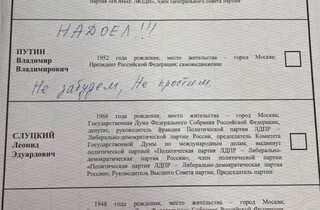 партия «НОВЫЕ ЛЮДИ», член Центрального совета партии
НАДОЕЛ!!!
ПУТИН
Владимир
Владимирович
1952 года рождения; место жительства – город Москва;
Президент Российской Федерации; самовыдвижение
Не забудем, Не простим
СЛУЦКИЙ
Леонид
Эдуардович
1968 года рождения; место жительства – город Москва;
Государственная Дума Федерального Собрания Российской Федерации,
депутат, руководитель фракции Политической партии ЛДПР –
Либерально-демократической партии России, председатель Комитета
Государственной Думы по международным делам; выдвинут
политической партией «Политическая партия ЛДПР – Либерально-
демократическая партия России»; член политической партии
«Политическая партия ЛДПР – Либерально-демократическая партия
России», Руководитель Высшего Совета партии, Председатель партии
1948 года рождения; место жительства – город Москва;